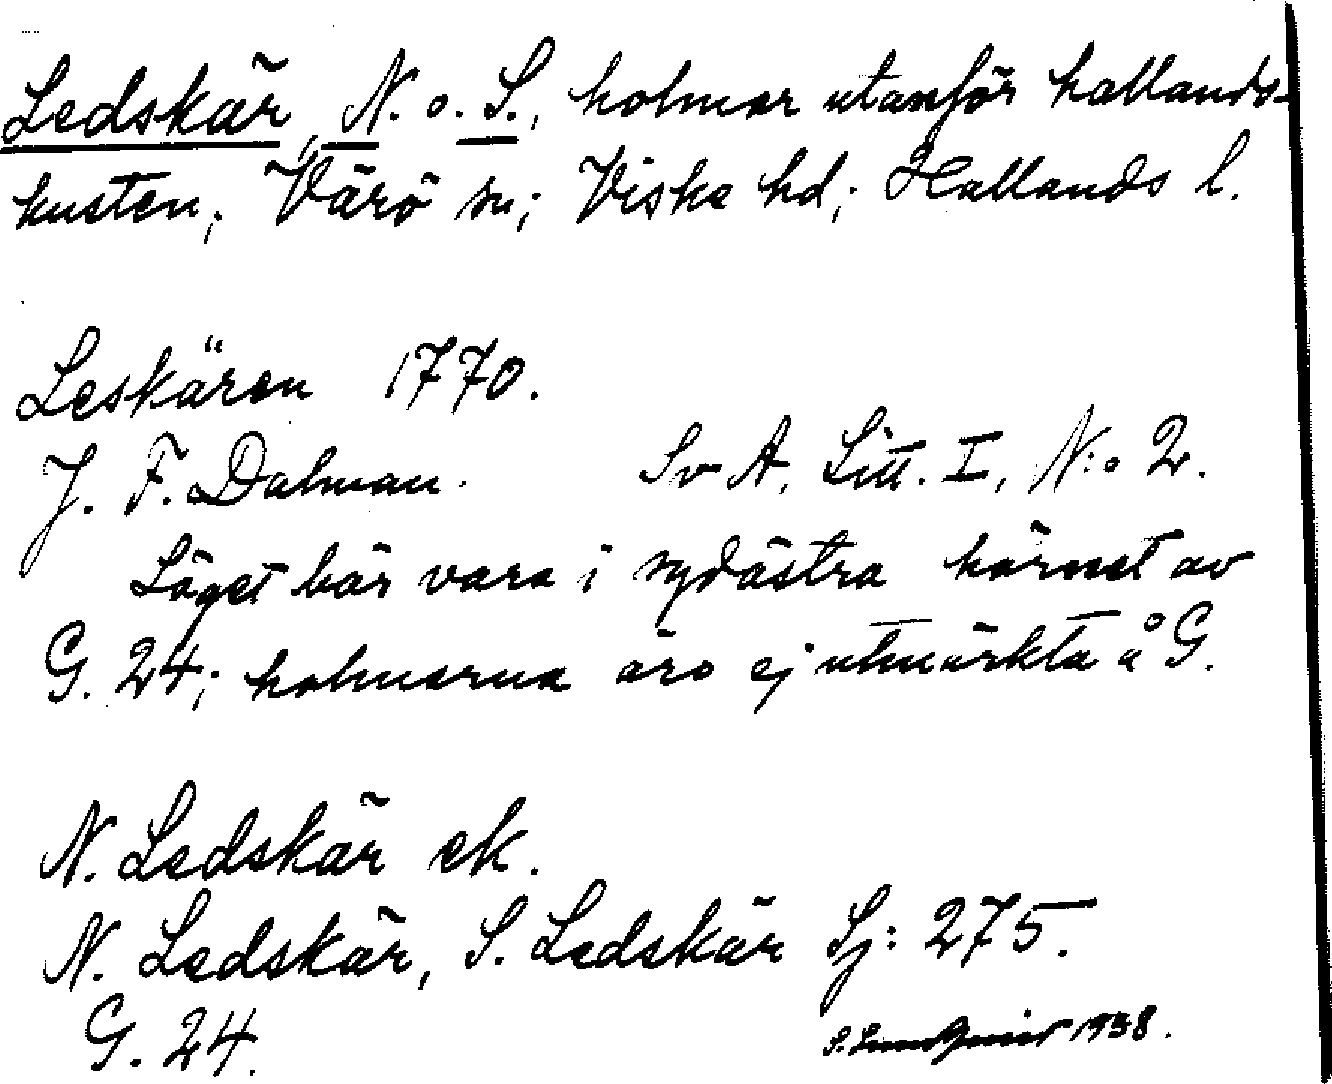 Ledskär, N. o. S., holmar utanför hallands-
kusten; Värö sn; Viske hd; Hallands l.
Leskären 1770.
J. F. Dalman. Sv A, Litt. I, N:o 2.
Läget bör vara i sydöstra hörnet av
G. 24; holmarna äro ej utmärkta å G.
N. Ledskär ek.
N. Ledskär, S. Ledskär Sj: 275.
G. 24.
S. Lundquist 1938.